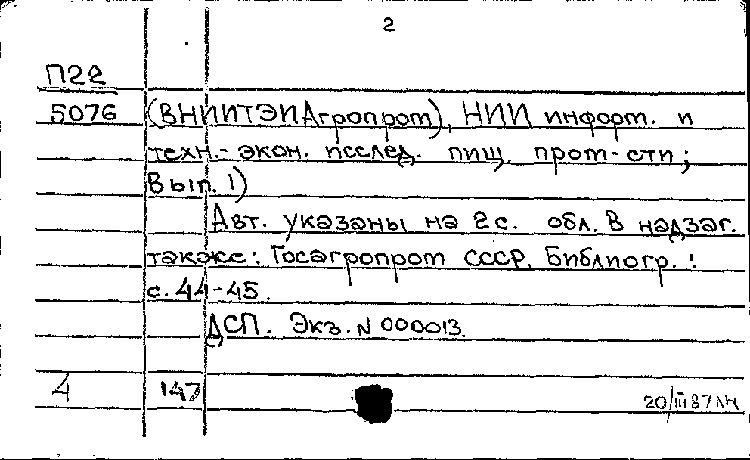 2
П22
5076 (ВНИИТЭИАгропром), НИИ информ. и
техн.-экон. исслед. пищ. пром-сти;
Вып. 1)
Авт. указаны на 2 с. обл. В надзаг.
также: Госагропром СССР. Библиогр.:
с. 44-45.
ДСП. Экз. N 000013.
4 147
20/III 87